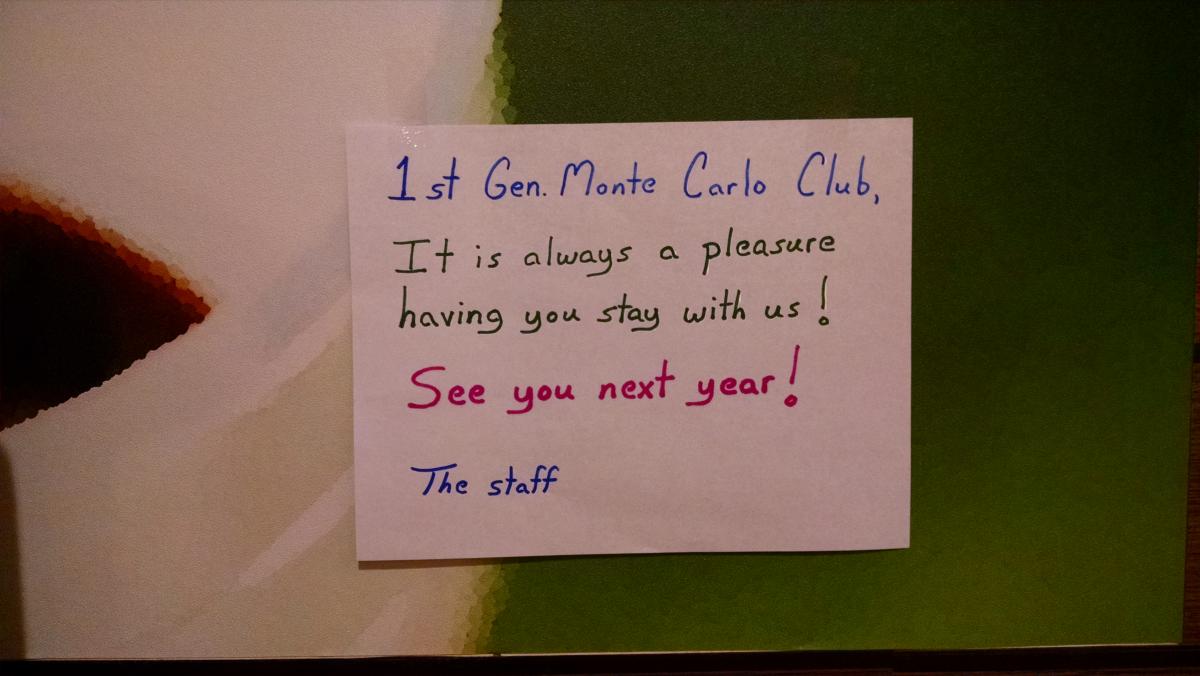 1st Gen. Monte Carlo Club,
It is always a pleasure
having you stay with us!
See you next year!
The staff